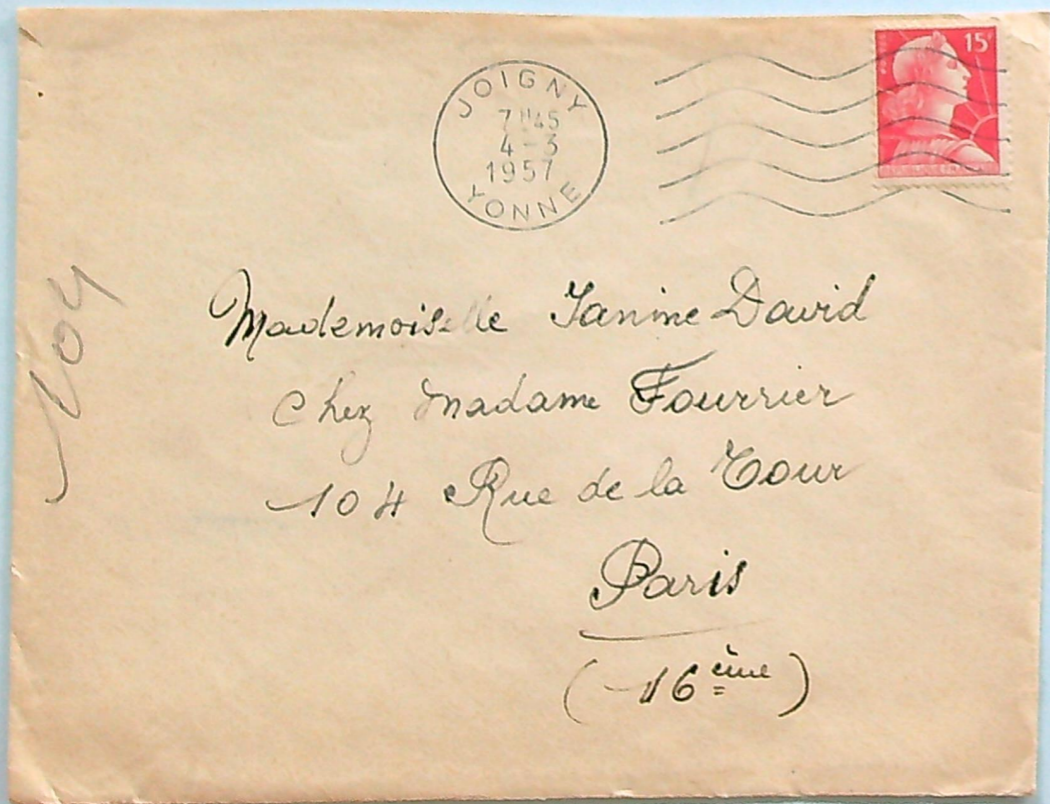 JOIGNY
7H45
4-3
1957
YONNE
15F
104
Mademoiselle Janine David
Chez Madame Fourrier
104 Rue de la Tour
Paris
(16ème)